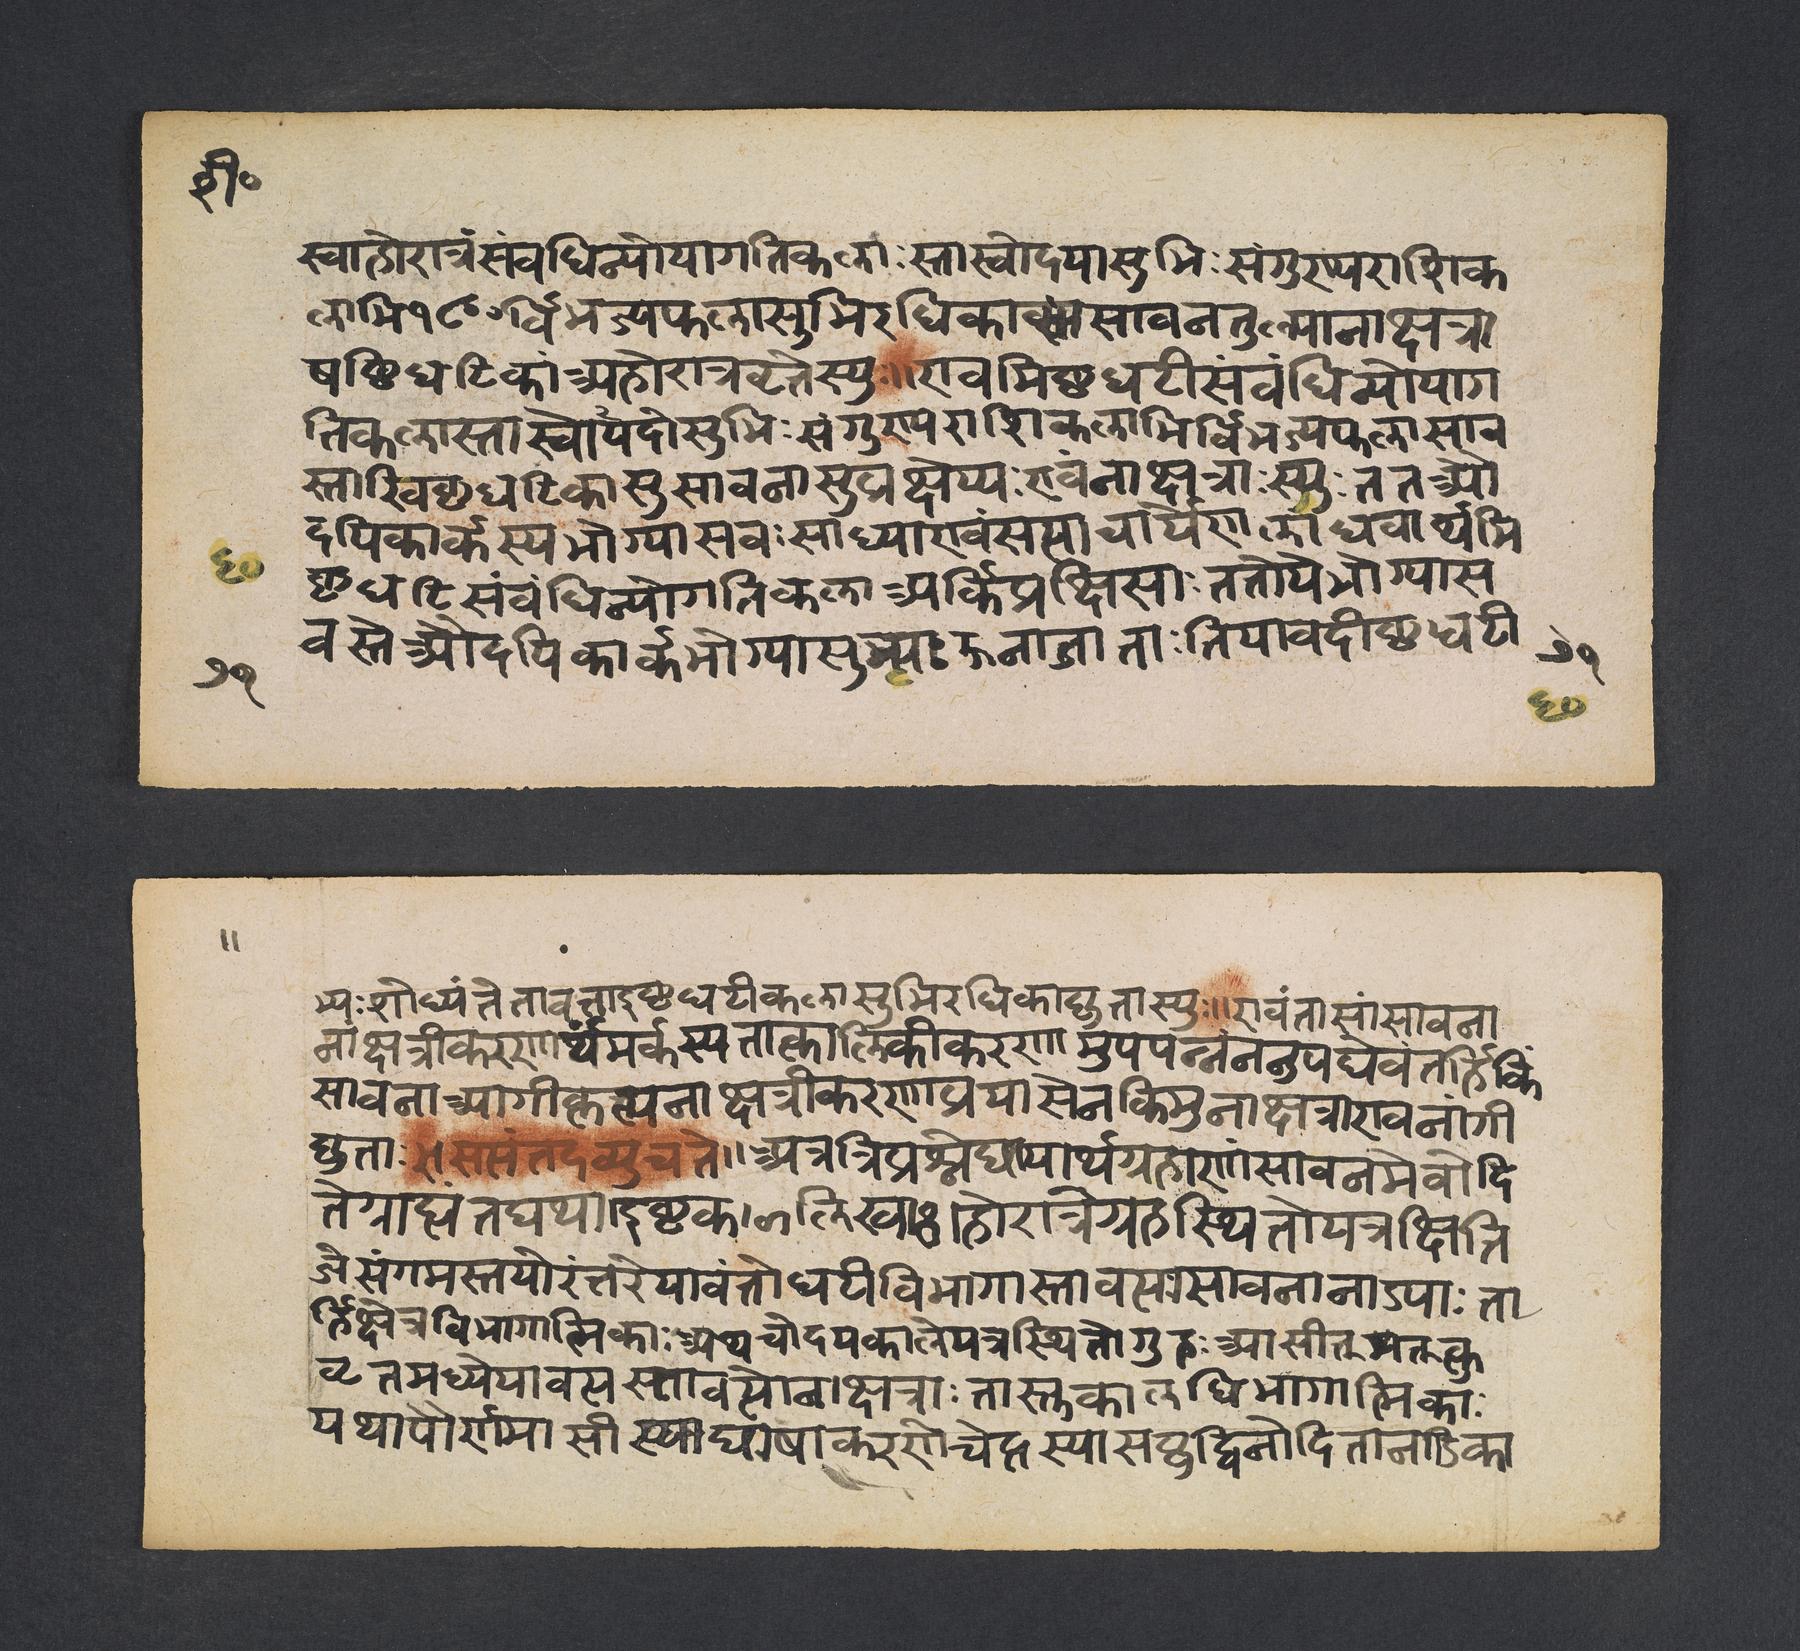 टी॰
स्वाहोरात्रंसंवधिन्योयागतिकलाः स्तास्वोदयासुभिः संगुण्यराशिक
लाभि१८००र्विभज्यप्तलासुभिरधिका सावनतुल्यानाक्षत्रा
षष्टिघटिकांअहोरात्रवृत्तेस्युः॥एवमिष्टघटीसंवंधिन्योयाग
तिकलास्ता सुभिः संगुण्यराशिकलाभिर्विभज्यप्तलासाव
स्तास्विष्टघटिकासुसावनासुप्रक्षेप्यः एवंनाक्षत्राः स्युः ततऔ
दयिकार्कस्यभोग्यासवः साध्याएवंसत्याचार्येणलाघवार्थमि
ष्टघटिसंवंधिन्योगतिकलाअर्केप्रक्षिप्ताः ततोयेभोग्यास
वस्तेऔदयिकार्कभोग्यासुभ्यः नाजाताः तियावदीष्टघटी
६०
७१
७१
६०
॥
भ्यः शोध्यंतेतावत्ताइष्टघटीकलासुभिरधिकाद्युतास्युः॥एवंतासांसावना
नांक्षत्रीकरणार्थमर्कस्यतात्कालिकीकरणमुपपन्नंननुपद्येवंतर्हिकिं
सावनाअंगीकृत्यनाक्षत्रीकरणप्रयासेनकिमुनाक्षत्राएवनांगी
द्युताः सत्यंतदव्युचते॥अत्रत्रिप्रश्नेद्यायार्थग्रहाणांसावनमेवोदि
तंग्राह्यंतद्यथा।इष्टक लिस्वाहोरात्रेग्रहस्थितोयत्रक्षिति
जेसंगमस्तयोरंत्तरेयावंतोघटीविभागास्तावत्यःसावनानाऽपाः ता
र्हिक्षेत्रविभागात्मिकाः अथचोदयकालेयत्रस्थितोग्रहः आसीत्
वृत्तमध्येयावत्य स्तावत्योनाक्षत्राः तास्तुकालविभागात्मिकाः
यथापौर्णमासी चेत्तस्या